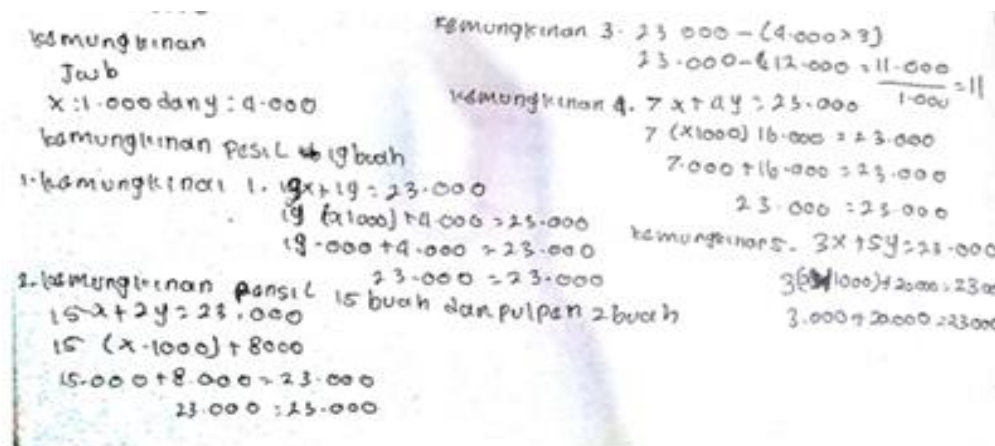 kemungkinan
Jawb
x : 1.000 dan y : 4.000
kemungkinan pesil 19 buah
1. kemungkinan 1. 19x + 1y = 23.000
19 (x1000) + 4.000 = 23.000
19.000 + 4.000 = 23.000
23.000 = 23.000
2. kemungkinan pensil 15 buah dan pulpen 2 buah
15x + 2y = 23.000
15 (x.1000) + 8000
15.000 + 8.000 = 23.000
23.000 = 23.000
kemungkinan 3. 23 000 - (4.000 x 3)
23.000 - 12.000 = 11.000
1.000 = 11
kemungkinan 4. 7x + 4y = 23.000
7 (x1000) 16.000 = 23.000
7.000 + 16.000 = 23.000
23.000 = 23.000
kemungkinan 5. 3x + 5y = 23.000
3( 1000) + 20.000 = 2300
3.000 + 20.000 = 23000